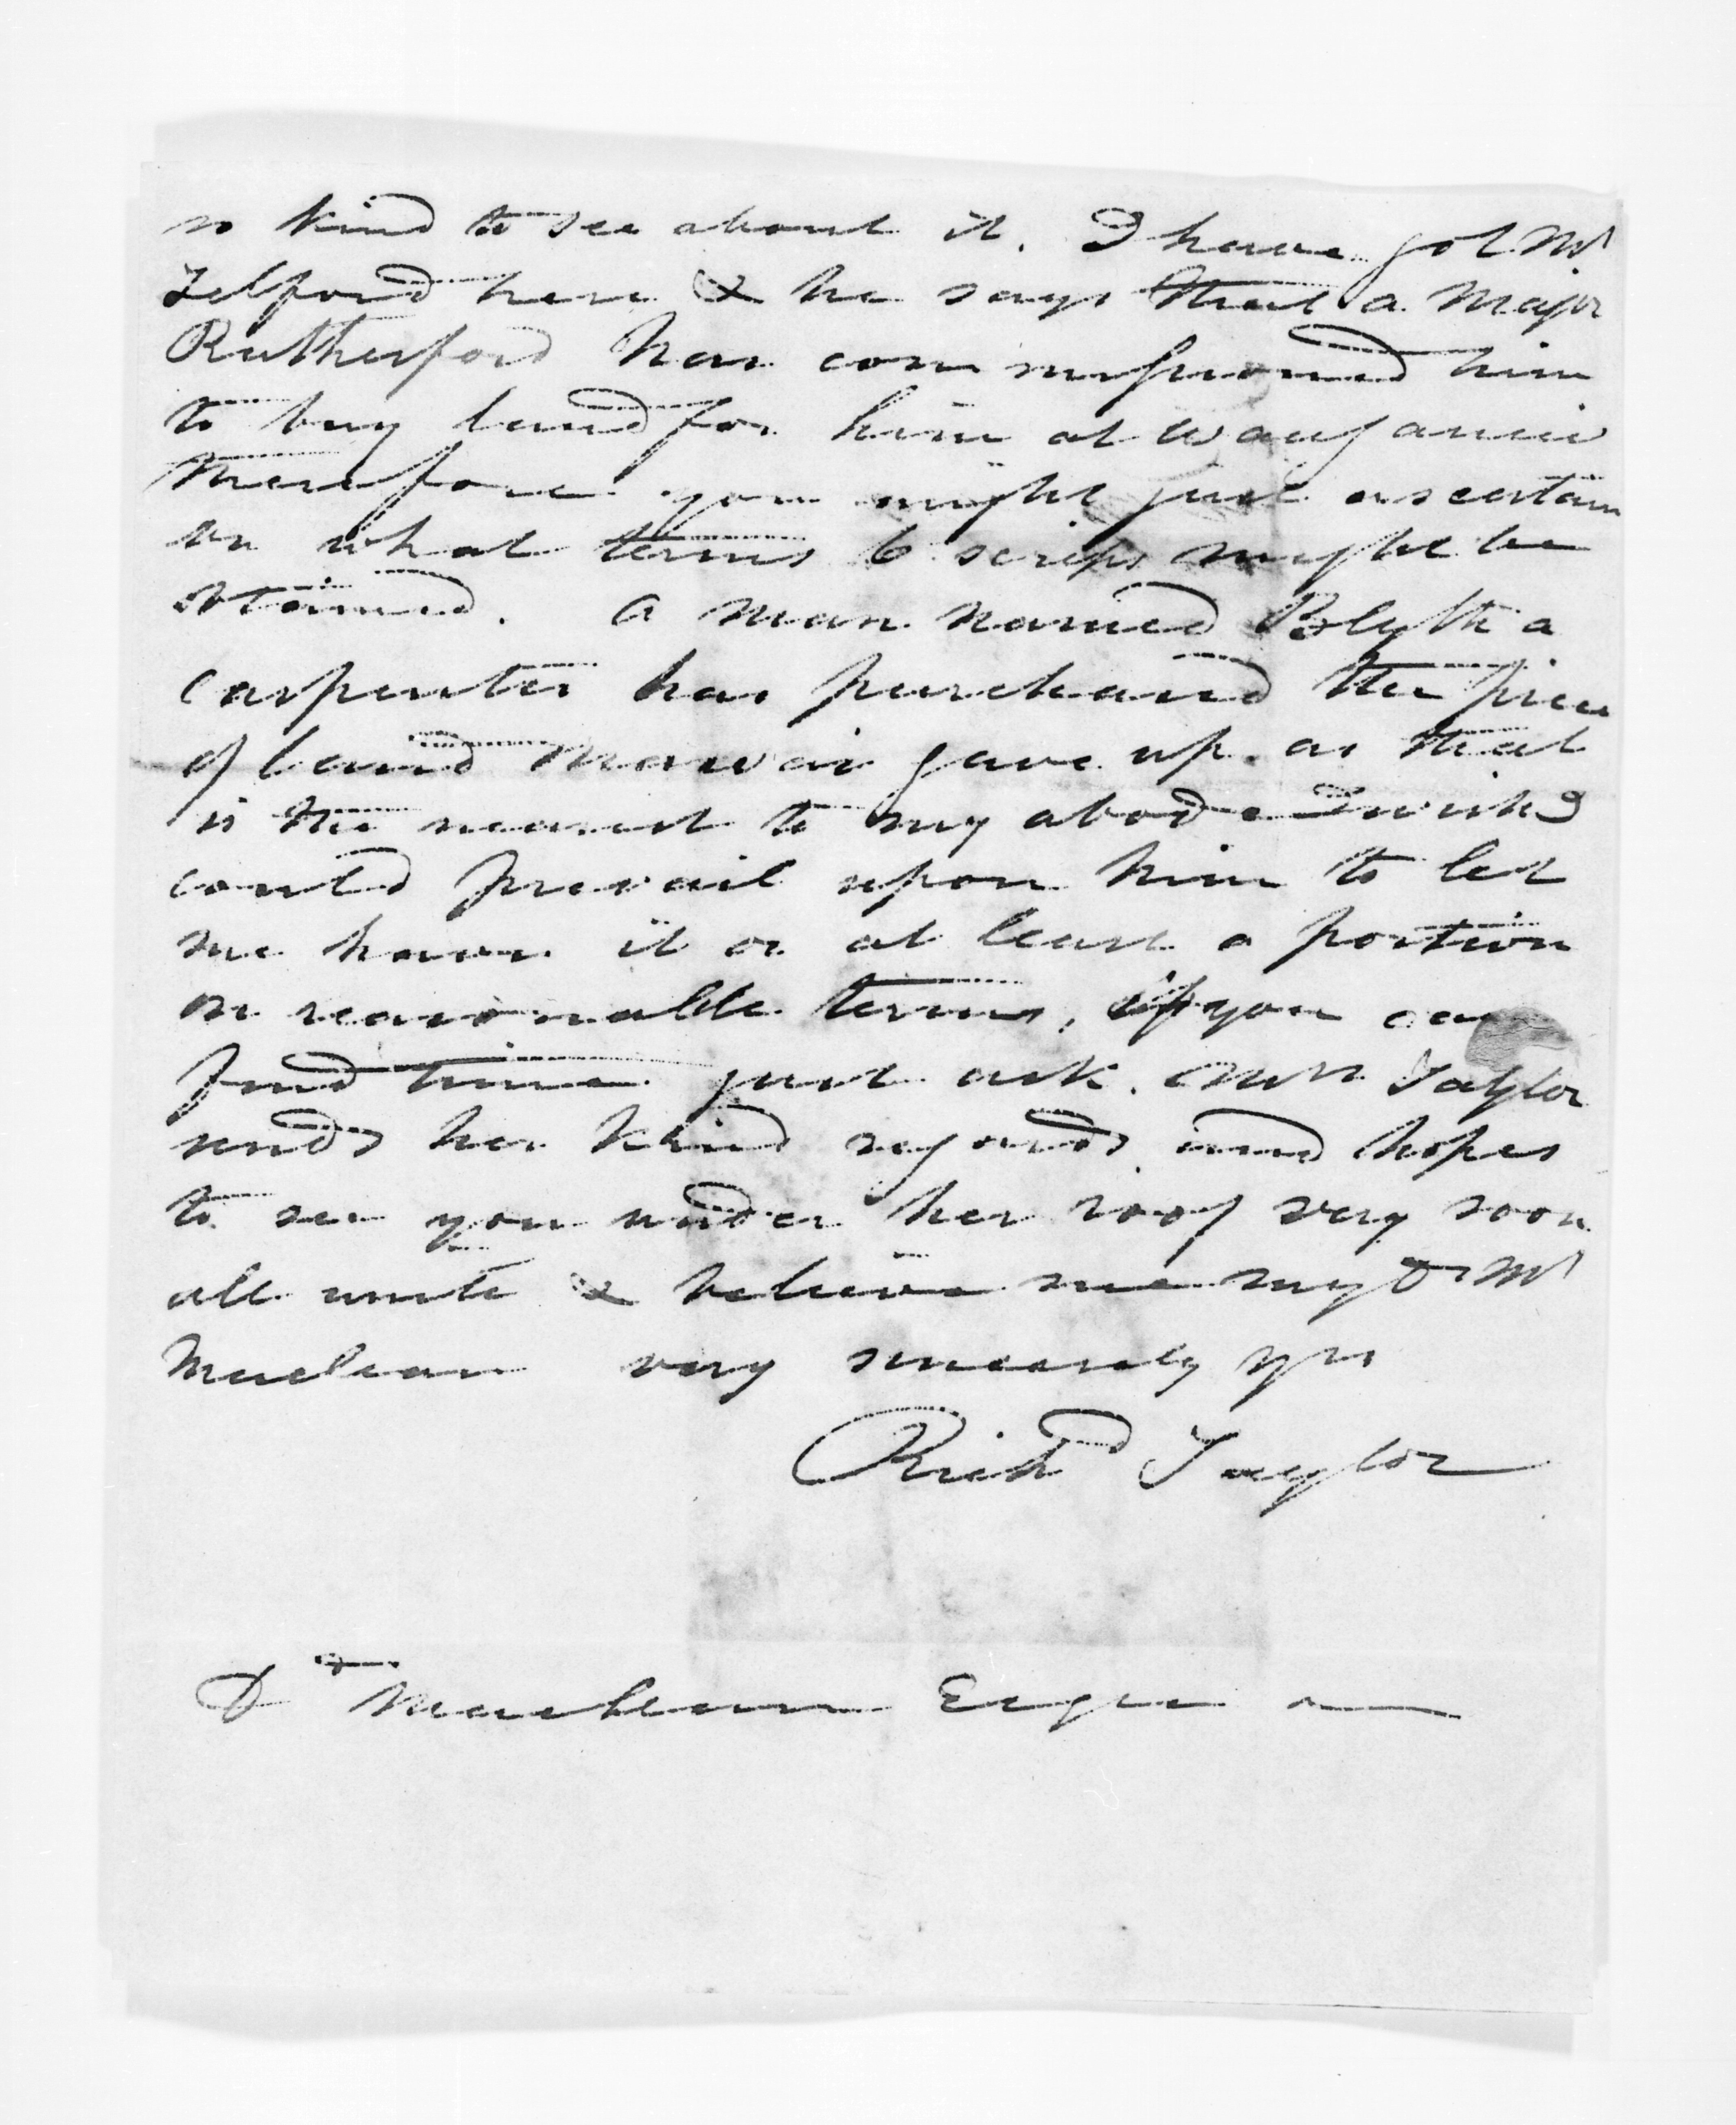 so kind to see about it. I have got Mr
Telford here & he says that a Major
Rutherford has commissioned him
to buy land for him at Wanganui
therefore you might just ascertain
on what terms 6 scrips might be
obtained. A man named Blyth a
carpenter has purchased the piece
of land Mawai gave up. as that
is the nearest to my abode I wish I
could prevail upon him to let
me have it or at least a portion
on reasonable terms, if you can
find time just ask. Mrs Taylor
sends her kind regards and hopes
to see you under her roof very soon
all unite & believe me my Dr Mr
Maclean very sincerely yrs
Richd Taylor
D Maclean Esqre